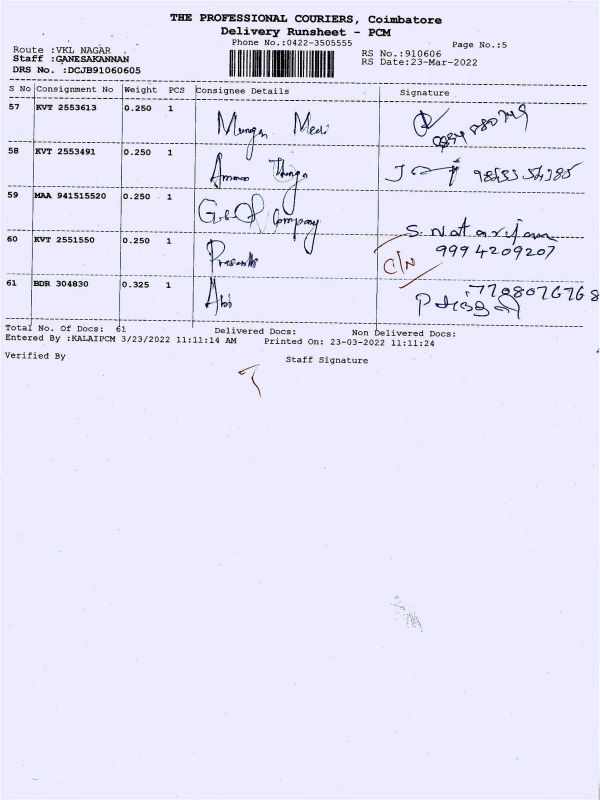 THE PROFESSIONAL COURIERS, Coimbatore
Delivery Runsheet - PCM
Phone No.:0422-3505555
Page No.:5
Route :VKL NAGAR
RS No.:910606
Staff :GANESAKANNAN
RS Date:23-Mar-2022
DRS No. :DCJB91060605
S No Consignment No Weight PCS Consignee Details Signature
57 KVT 2553613 0.250 1
58 KVT 2553491 0.250 1
59 MAA 941515520 0.250 1 Company
S. Natarajan
9994209207
60 KVT 2551550 0.250 1 C/N
61 BDR 304830 0.325 1 7708076768
Total No. Of Docs: 61 Delivered Docs: Non Delivered Docs:
Entered By :KALAIPCM 3/23/2022 11:11:14 AM Printed On: 23-03-2022 11:11:24
Verified By Staff Signature